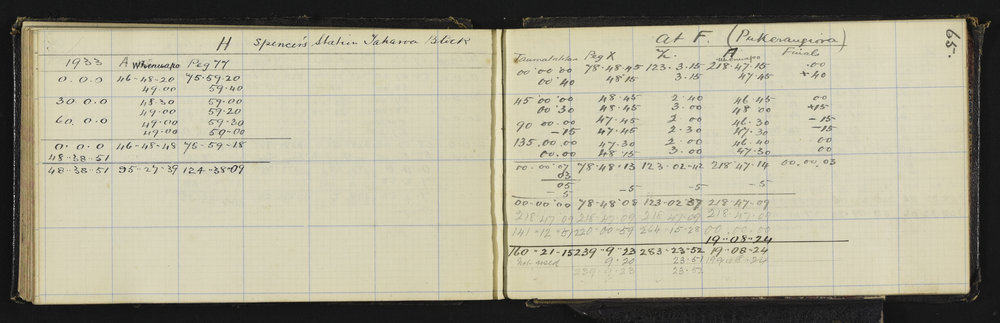 H Spencer's Station Taharoa Block
1933 A Whenuapo Peg YY
0.0.0 46-48-20 75-59-20
49.00 59.40
30 0.0 48.30 59.00
49.00 59.20
60.0.0 49.00 59.30
49.00 59-00
0.0.0 46-48-48 75-59-18
48-38-51
48-38-51 95-27-39 124-38-09
65.
at F. (Pukerangiora)
Peg X Z. A Whenuapo Finals
00°00'00 78-48 45 123.3.15 218.47.15 .00
00'40 48 15 3.15 47.45 +40
45 00.00 48.45 2.40 46.45 00
00'30 48.45 3.00 48.00 +15
90 00.00 47.45 2 00 46.30 -15
-15 47.45 2.30 47.30 -15
135.00.00 47.30 2.00 46.40 00
00.00 48.15 3.00 47.30 00
00.00.07 78-48-13 123-02-42 218 47.14 00.00.03
03
05 -5 -5 -5
-5
00.00.00 78-48'08 123-02 37 218-47-09
218 47 09 218-47-09 218 47-09 218-47-09
141-12-51 220-00-59 264-15-28 00.00.00
19-08-24
160-21-15 239-9-23 283-23-52 19-08-24
not used 9-20 23.51 19-08-24
239-9-23 23-52